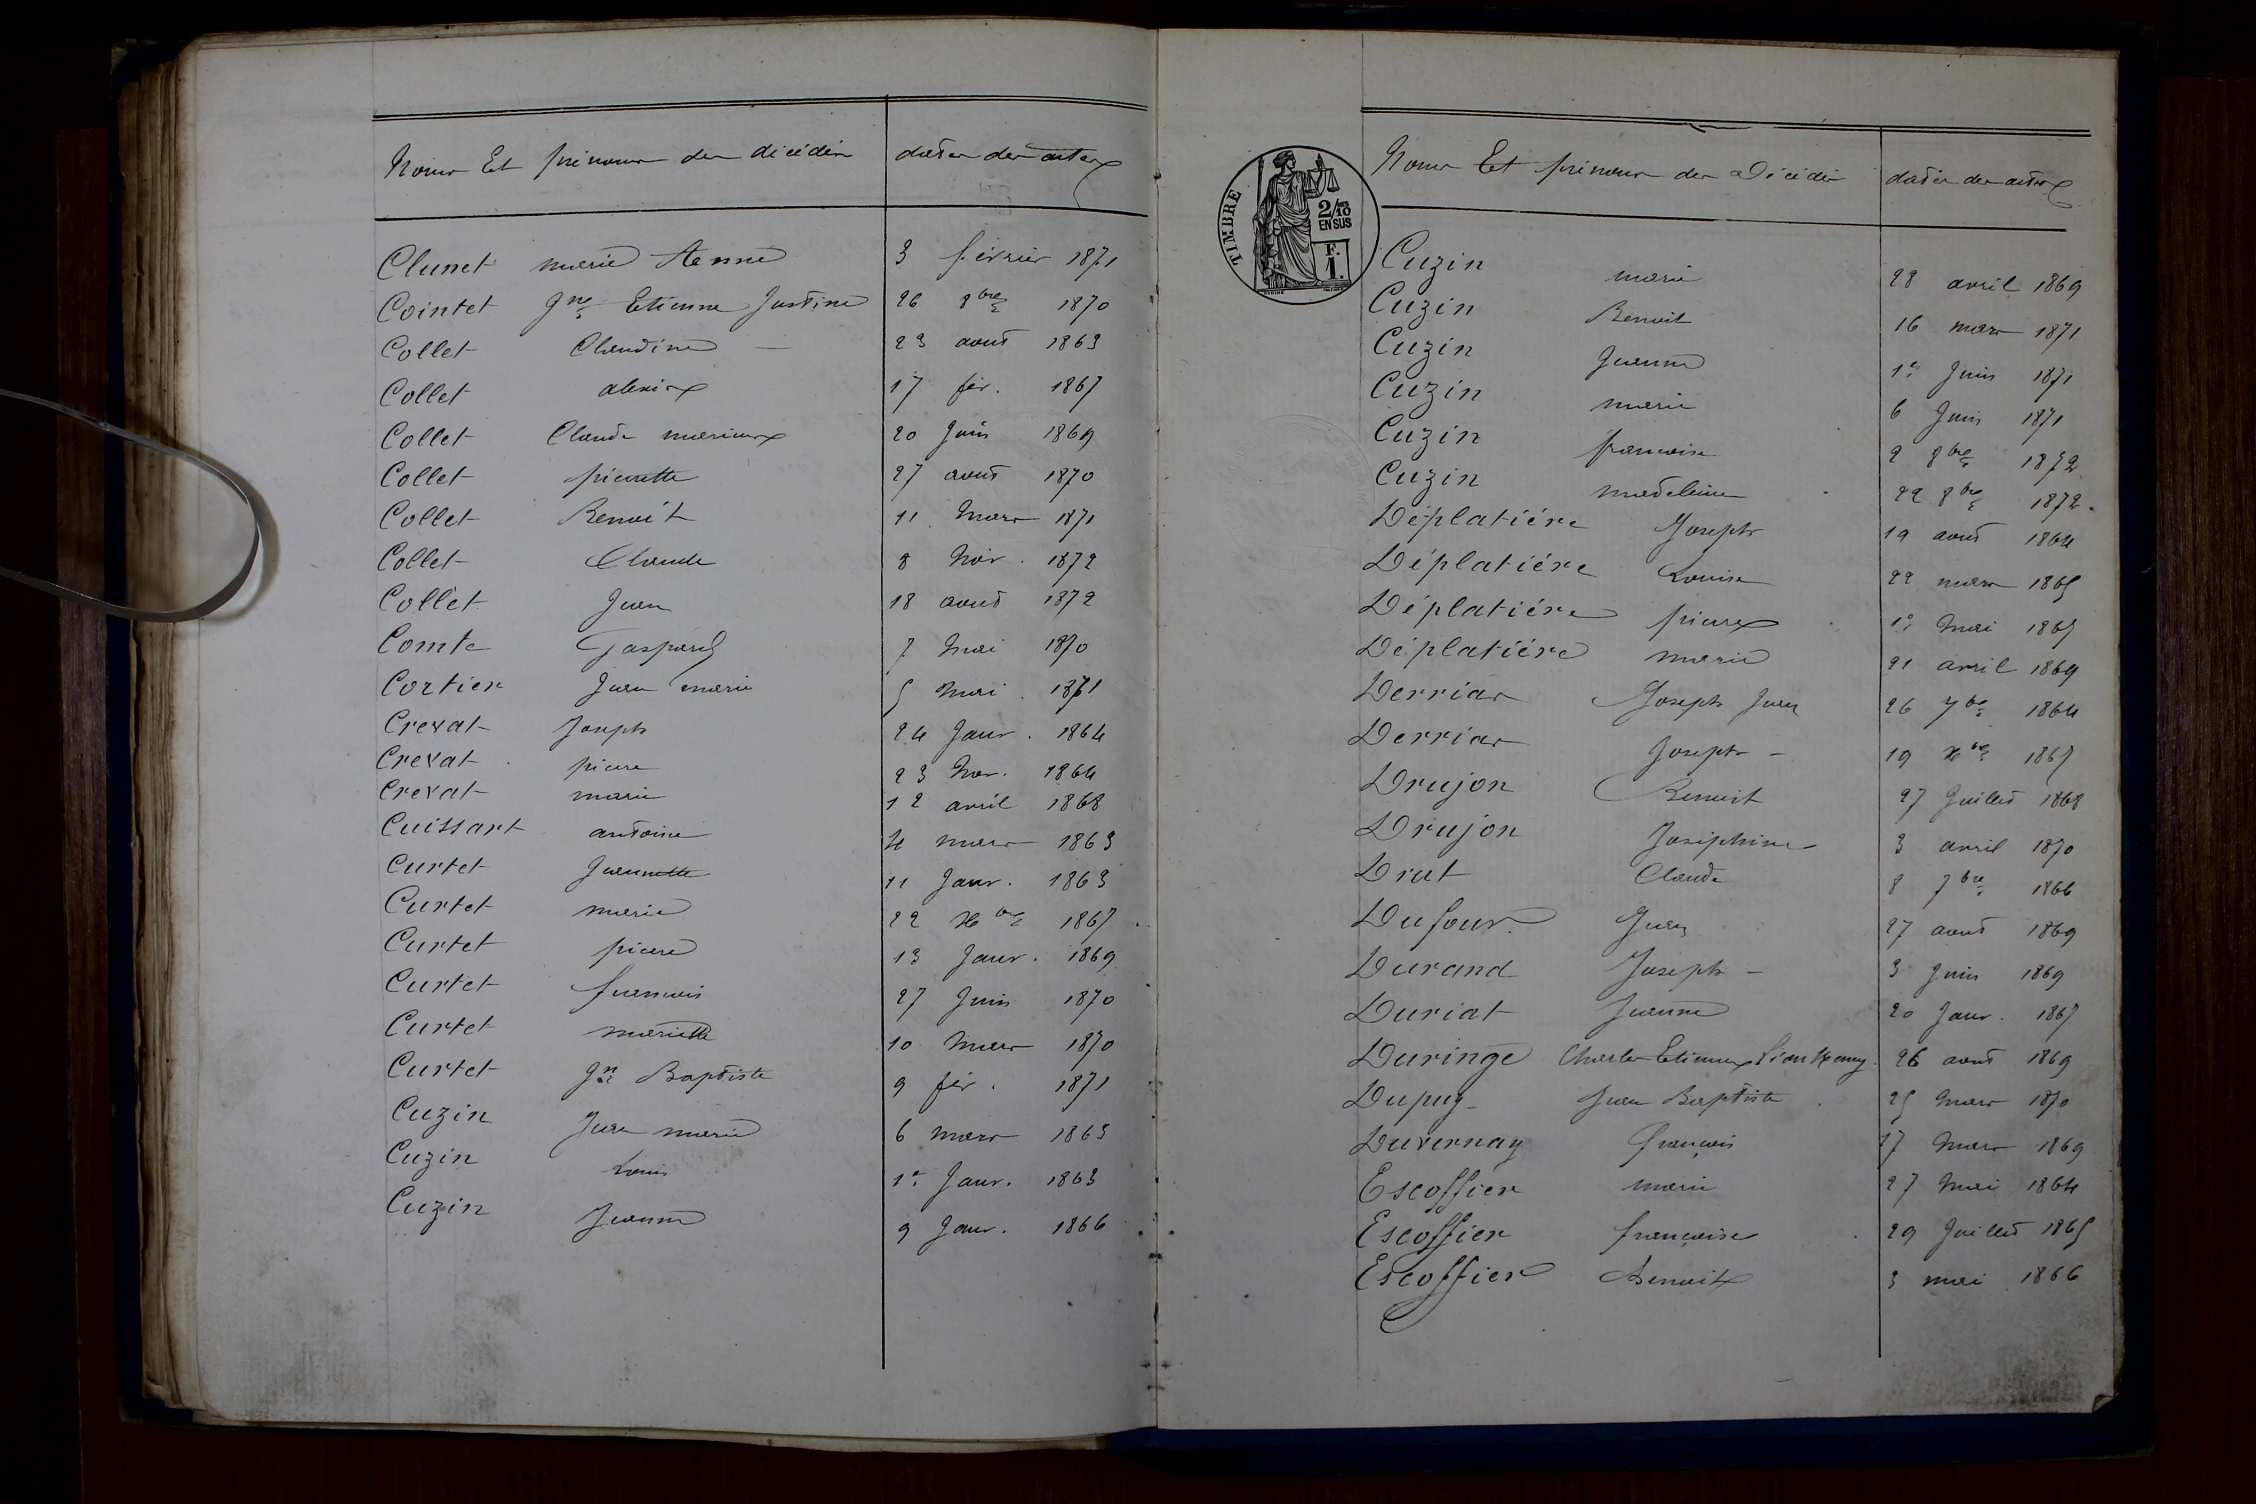 Noms Et prénoms des décédés dates des actes
Clunet marie Anne 3 février 1871
Cointet Jne Etienne Justine 26 8bre 1870
Collet Claudine 23 aout 1863
Collet alexis 17 fév. 1867
Collet Claude marius 20 Juin 1869
Collet pierrette 27 aout 1870
Collet Benoit 11 Mars 1871
Collet Claude 8 Nov. 1872
Collet Jean 18 aout 1872
Comte Gaspard 7 Mai 1870
Cortier Jean marie 5 Mai 1871
Crevat Joseph 24 Janv. 1864
Crevat pierre 23 Nov. 1864
Crevat marie 12 avril 1868
Cuissart antoine 4 mars 1863
Curtet Jeannette 11 Janv. 1863
Curtet marie 22 Xbre 1867
Curtet pierre 13 Janv. 1869
Curtet francois 27 Juin 1870
Curtet mariette 10 Mars 1870
Curtet Jn Baptiste 9 fév. 1871
Cuzin Jean marie 6 mars 1863
Cuzin Louis 1er Janv. 1863
Cuzin Jeanne 9 Janv. 1866
TIMBRE
2/10 EN SUS
F.
1.
Noms Et prénoms des Décédés dates des actes
Cuzin marie 28 avril 1869
Cuzin Benoit 16 mars 1871
Cuzin Jeanne 1er Juin 1871
Cuzin marie 6 Juin 1871
Cuzin francoise 2 8bre 1872
Cuzin madeleine 22 8bre 1872.
Déplatiére Joseph 19 aout 1864
Déplatiére Louise 22 mars 1865
Déplatiére pierre 1er Mai 1865
Déplatiére marie 21 avril 1869
Derrias Joseph Jean 26 7bre 1864
Derrias Joseph 19 Xbre 1867
Drujon Benoit 27 Juillet 1868
Drujon Joséphine 3 avril 1870
Drut Claude 8 7bre 1866
Dufour Jean 27 aout 1869
Durand Joseph 3 Juin 1869
Duriat Jeanne 20 Janv. 1867
Duringe Charles Etienne 26 aout 1869
Dupuy Jean Baptiste 25 Mars 1870
Duvernay françois 17 Mars 1869
Escoffier marie 27 Mai 1864
Escoffier françoise 29 Juillet 1865
Escoffier Benoit 3 mai 1866